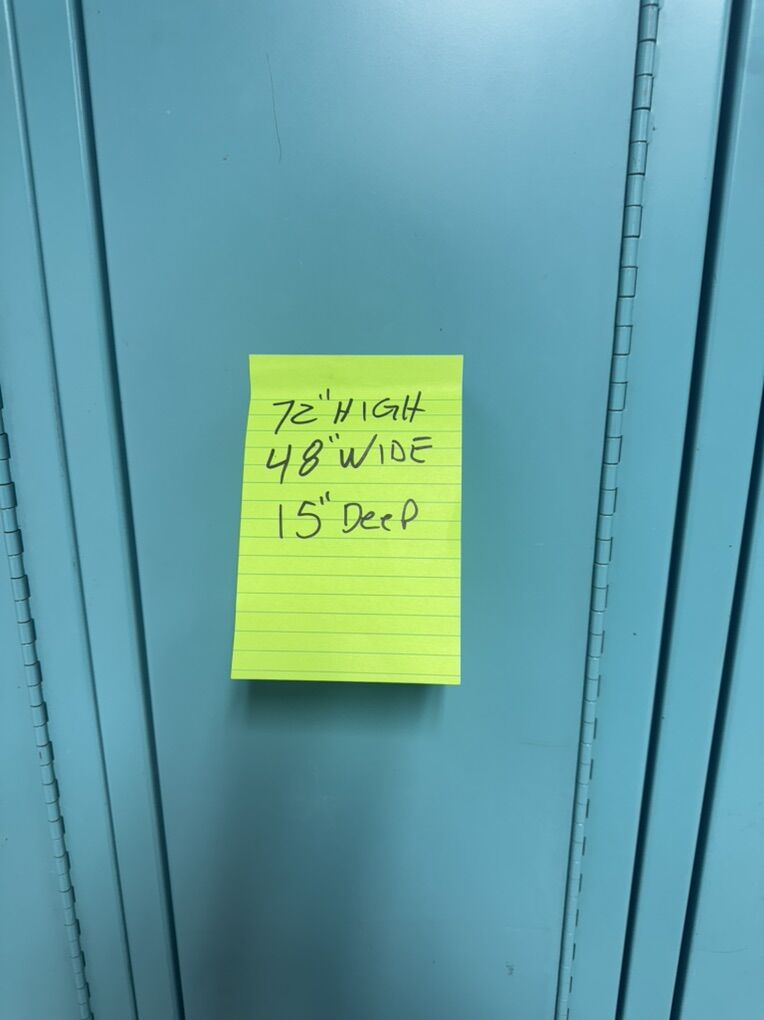 72" HIGH
48" WIDE
15" DeeP